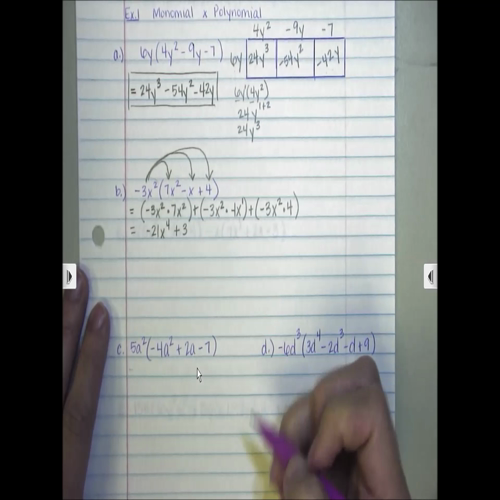 Ex.1 Monomial x Polynomial
4y² -9y -7
a.) 6y(4y² - 9y - 7) 6y 24y³ -54y² -42y
= 24y³ - 54y² - 42y
6y(4y²)
24y¹⁺²
24y³
b.) -3x²(7x² - x + 4)
= (-3x² · 7x²) + (-3x² · -1x¹) + (-3x² · 4)
= -21x⁴ + 3
c. 5a²(-4a² + 2a - 7) d.) -6d³(3d⁴ - 2d³ - d + 9)